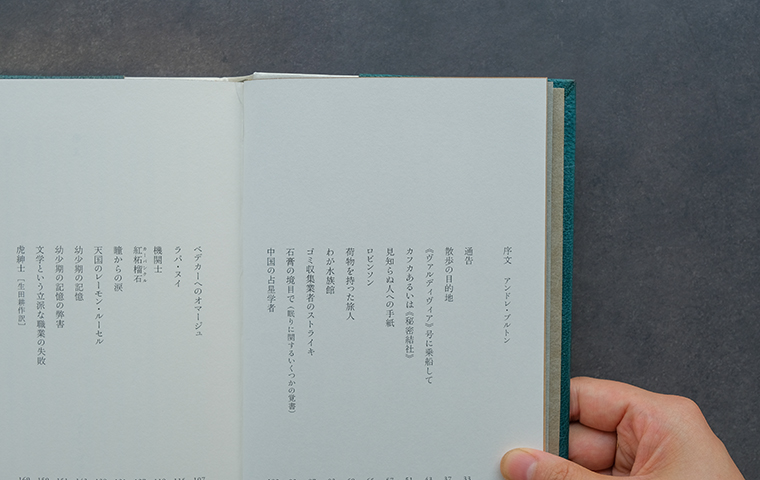 序文 アンドレ・ブルトン
通告
散歩の目的地
《ヴァルディヴィア》号に乗船して
カフカあるいは《秘密結社》
見知らぬ人への手紙
ロビンソン
荷物を持った旅人
わが水族館
ゴミ収集業者のストライキ
石膏の境目で(眠りに関するいくつかの覚書)
中国の占星学者
ベデカーへのオマージュ
ラパ・ヌイ
機関士
紅柘榴石
瞳からの涙
天国のレーモン・ルーセル
幼少期の記憶
幼少期の記憶の弊害
文学という立派な職業の失敗
虎紳士[生田耕作訳]